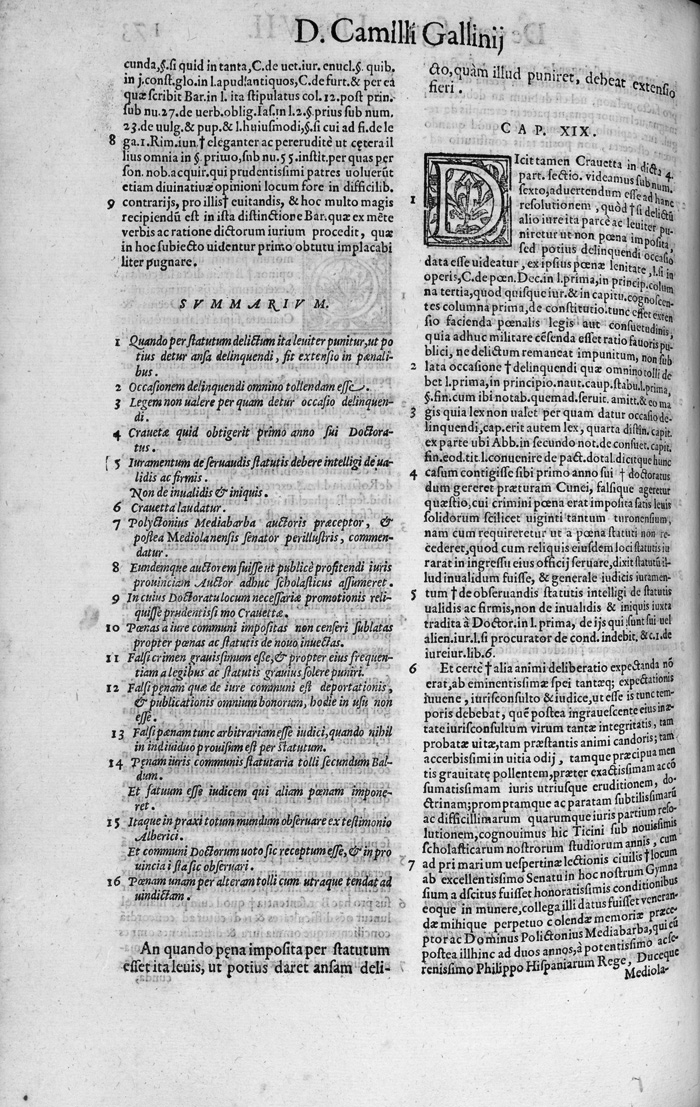 D. Camilli Gallinij
cunda, §. si quid in tanta, C. de uet. iur. enucl. §. quib.
in j. const. glo. in l. apud antiquos, C. de furt. & per ea
quæ scribit Bar. in l. ita stipulatus col. 12. post prin.
sub nu. 27. de uerb. oblig. Ias. in l. 2. §. prius sub num.
23. de uulg. & pup. & l. huiusmodi, §. si cui ad fi. de le
8 ga. 1. Rim. iun. † eleganter ac pererudite ut cętera il
lius omnia in §. priuio, sub nu. 55. instit. per quas per
son. nob. acquir. qui prudentissimi patres uoluerūt
etiam diuinatiuæ opinioni locum fore in difficilib.
9 contrarijs, pro illis † euitandis, & hoc multo magis
recipiendū est in ista distinctione Bar. quæ ex mēte
verbis ac ratione dictorum iurium procedit, quæ
in hoc subiecto uidentur primo obtutu implacabi
liter pugnare.
SVMMARIVM.
1 Quando per statutum delictum ita leuiter punitur, ut po
tius detur ansa delinquendi, fit extensio in pœnali-
bus.
2 Occasionem delinquendi omnino tollendam esse.
3 Legem non ualere per quam detur occasio delinquen-
di.
4 Crauetæ quid obtigerit primo anno sui Doctora-
tus.
5 Iuramentum de seruandis statutis debere intelligi de ua-
lidis ac firmis.
Non de inualidis & iniquis.
6 Crauetta laudatur.
7 Polyctonius Mediabarba auctoris præceptor, &
postea Mediolanensis senator perillustris, commen-
datur.
8 Eundemque auctorem fuisse ut publicè profitendi iuris
prouinciam Auctor adhuc scholasticus assumeret.
9 In cuius Doctoratu locum necessariæ promotionis reli-
quisse prudentissimo Crauettæ.
10 Pœnas a iure communi impositas non censeri sublatas
propter pœnas ac statutis de nouo inuectas.
11 Falsi crimen grauissimum eße, & propter eius frequen-
tiam a legibus ac statutis grauius solere puniri.
12 Falsi pęnam quæ de iure communi est deportationis,
& publicationis omnium bonorum, hodie in usu non
esse.
13 Falsi pœnam tunc arbitrariam esse iudici, quando nihil
in indiuiduo prouisum est per statutum.
14 Pęnam iuris communis statutaria tolli secundum Bal-
dum.
Et fatuum esse iudicem qui aliam pœnam impone-
ret.
15 Itaque in praxi totum mundum obseruare ex testimonio
Alberici.
Et communi Doctorum uoto sic receptum esse, & in pro
uincia ista sic obseruari.
16 Pœnam unam per alteram tolli cum utraque tendat ad
uindictam.
An quando pęna imposita per statutum
esset ita leuis, ut potius daret ansam deli-
cto, quàm illud puniret, debeat extensio
fieri.
CAP. XIX.
DIcit tamen Crauetta in dicta 4.
part. sectio. videamus sub num.
sexto, aduertendum esse ad hanc
1 resolutionem, quòd † si delictū
alio iure ita parcè ac leuiter pu-
niretur ut non pœna imposita,
sed potius delinquendi occasio
data esse uideatur, ex ipsius pœnæ lenitate, l. si in
operis, C. de pœn. Dec. in l. prima, in princip. colum
na tertia, quod quisque iur. & in capitu. cognoscen-
tes columna prima, de constitutio. tunc esset exten
sio facienda pœnalis legis aut consuetudinis,
quia adhuc militare cēsenda esset ratio fauoris pu-
blici, ne delictum remaneat impunitum, non sub
2 lata occasione † delinquendi quæ omnino tolli de
bet l. prima, in principio. naut. caup. stabu. l. prima,
§. fin. cum ibi notab. quemad. seruit. amitt. & eo ma
3 gis quia lex non ualet per quam datur occasio de-
linquendi, cap. erit autem lex, quarta distin. capit.
ex parte ubi Abb. in secundo not. de consuet. capit.
fin. eod. tit. l. conuenire de pact. dotal. dicitque hunc
4 casum contigisse sibi primo anno sui † doctoratus
dum gereret præturam Cunei, falsique ageretur
quæstio, cui crimini pœna erat imposita satis leuis
solidorum scilicet uiginti tantum turonensium,
nam cum requireretur ut a pœna statuti non re-
cederet, quod cum reliquis eiusdem loci statutis iu
rarat in ingressu eius officij seruare, dixit statutū il-
lud inualidum fuisse, & generale iudicis iuramen-
5 tum † de obseruandis statutis intelligi de statutis
ualidis ac firmis, non de inualidis & iniquis iuxta
tradita à Doctor. in l. prima, de ijs qui sunt sui uel
alien. iur. l. si procurator de cond. indebit. & c. 1. de
iureiur. lib. 6.
6 Et certè † alia animi deliberatio expectanda nō
erat, ab eminentissimæ spei tantæq; expectationis
iuuene, iurisconsulto & iudice, ut esse is tunc tem-
poris debebat, quē postea ingrauescente eius in æ-
tate iurisconsultum virum tantæ integritatis, tam
probatæ uitæ, tam præstantis animi candoris; tam
accerbissimi in uitia odij, tamque præcipua men
tis grauitate pollentem, præter exactissimam ac cō
sumatissimam iuris utriusque eruditionem, do-
ctrinam; promptamque ac paratam subtilissimarū
ac difficillimarum quarumque iuris partium reso-
lutionem, cognouimus hic Ticini sub nouissimis
scholasticarum nostrorum studiorum annis, cum
7 ad primarium uespertinæ lectionis ciuilis † locum
ab excellentissimo Senatu in hoc nostrum Gymna
sium adscitus fuisset honoratissimis conditionibus
eoque in munere, collega illi datus fuisset veneran-
dæ mihique perpetuo colendæ memoriæ præce-
ptor ac Dominus Polictonius Mediabarba, qui cū
postea illhinc ad duos annos, à potentissimo ac se-
renissimo Philippo Hispaniarum Rege, Duceque
Mediola-